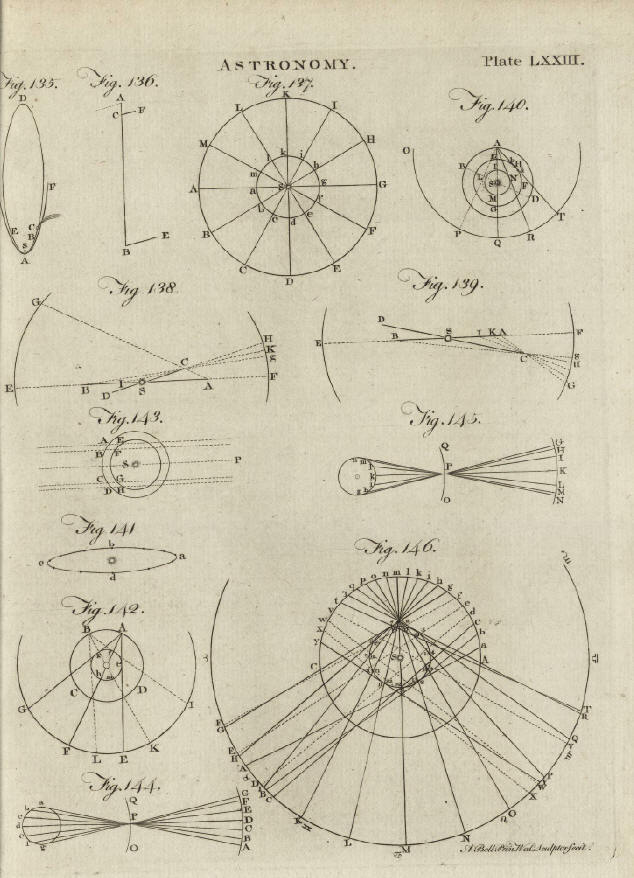 ASTRONOMY.
Plate LXXIII.
Fig. 135.
D
F
E
C
B
S
A
Fig. 136.
A
C
F
B
E
Fig. 137.
K
L
I
M
H
A
G
B
F
C
E
D
k
l
i
m
h
a
S
g
b
f
c
e
d
Fig. 140.
O
A
B
H
I
L
S
N
F
M
D
G
T
P
Q
R
Fig. 138
G
H
K
g
C
E
B
I
S
A
F
D
Fig. 139.
D
B
S
I
K
A
F
E
C
g
H
G
Fig. 143.
A
E
B
F
S
P
C
G
D
H
Fig. 145.
Q
G
H
I
P
K
L
M
N
O
Fig. 141
b
a
c
d
Fig. 142.
B
A
C
D
G
I
F
L
E
K
Fig. 144.
Q
G
F
E
P
D
C
B
A
O
Fig. 146.
q
p
o
n
m
l
k
i
h
g
f
e
d
c
b
a
w
x
y
C
A
S
F
G
E
H
A
D
B
C
L
M
N
O
X
Q
T
R
A. Bell Prin. Wal. Sculptor fecit.